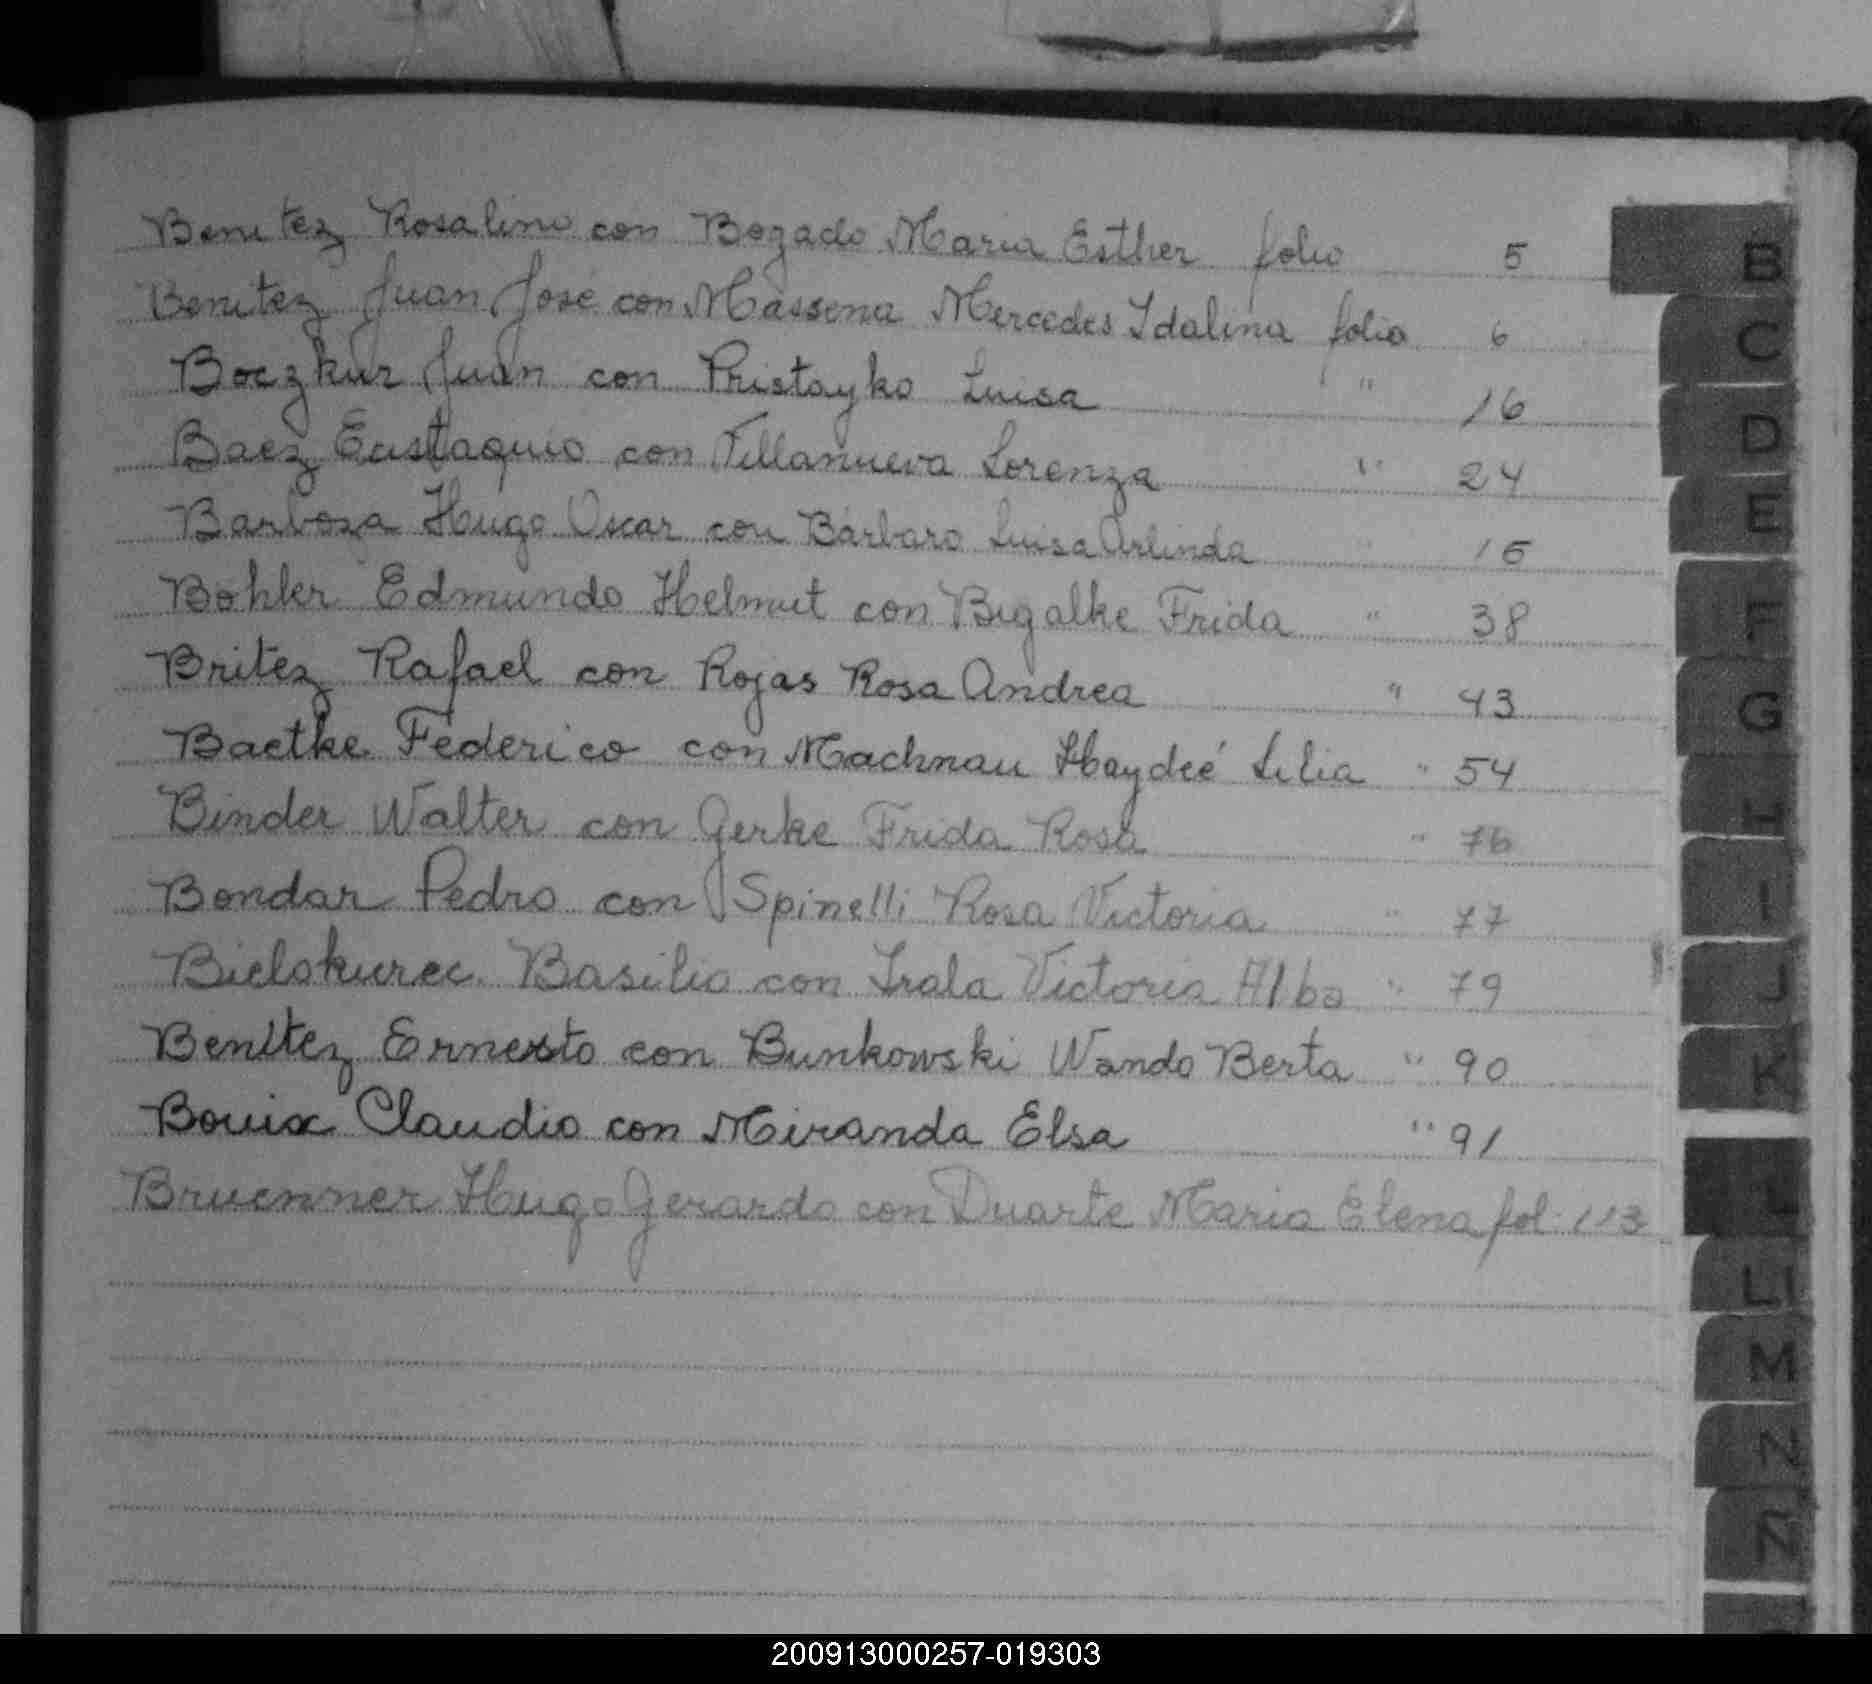 Benitez Rosalino con Bogado Maria Esther folio 5
Benitez Juan José con Massena Mercedes Idalina folio 6
Boczkur Juan con Pristayko Luisa " 16
Baez Eustaquio con Villanueva Lorenza " 24
Barboza Hugo Oscar con Bárbaro Luisa Arlinda " 15
Bohler Edmundo Helmut con Bigalke Frida " 38
Britez Rafael con Rojas Rosa Andrea " 43
Baetke Federico con Machnau Haydeé Lilia " 54
Binder Walter con Gerke Frida Rosa " 76
Bondar Pedro con Spinelli Rosa Victoria " 77
Bielakurec Basilio con Irala Victoria Alba " 79
Benítez Ernesto con Bunkowski Wanda Berta " 90
Bouix Claudio con Miranda Elsa " 91
Bruenner Hugo Gerardo con Duarte Maria Elena fol. 113
B
C
D
E
F
G
H
I
J
K
L
LI
M
N
Ñ
200913000257-019303